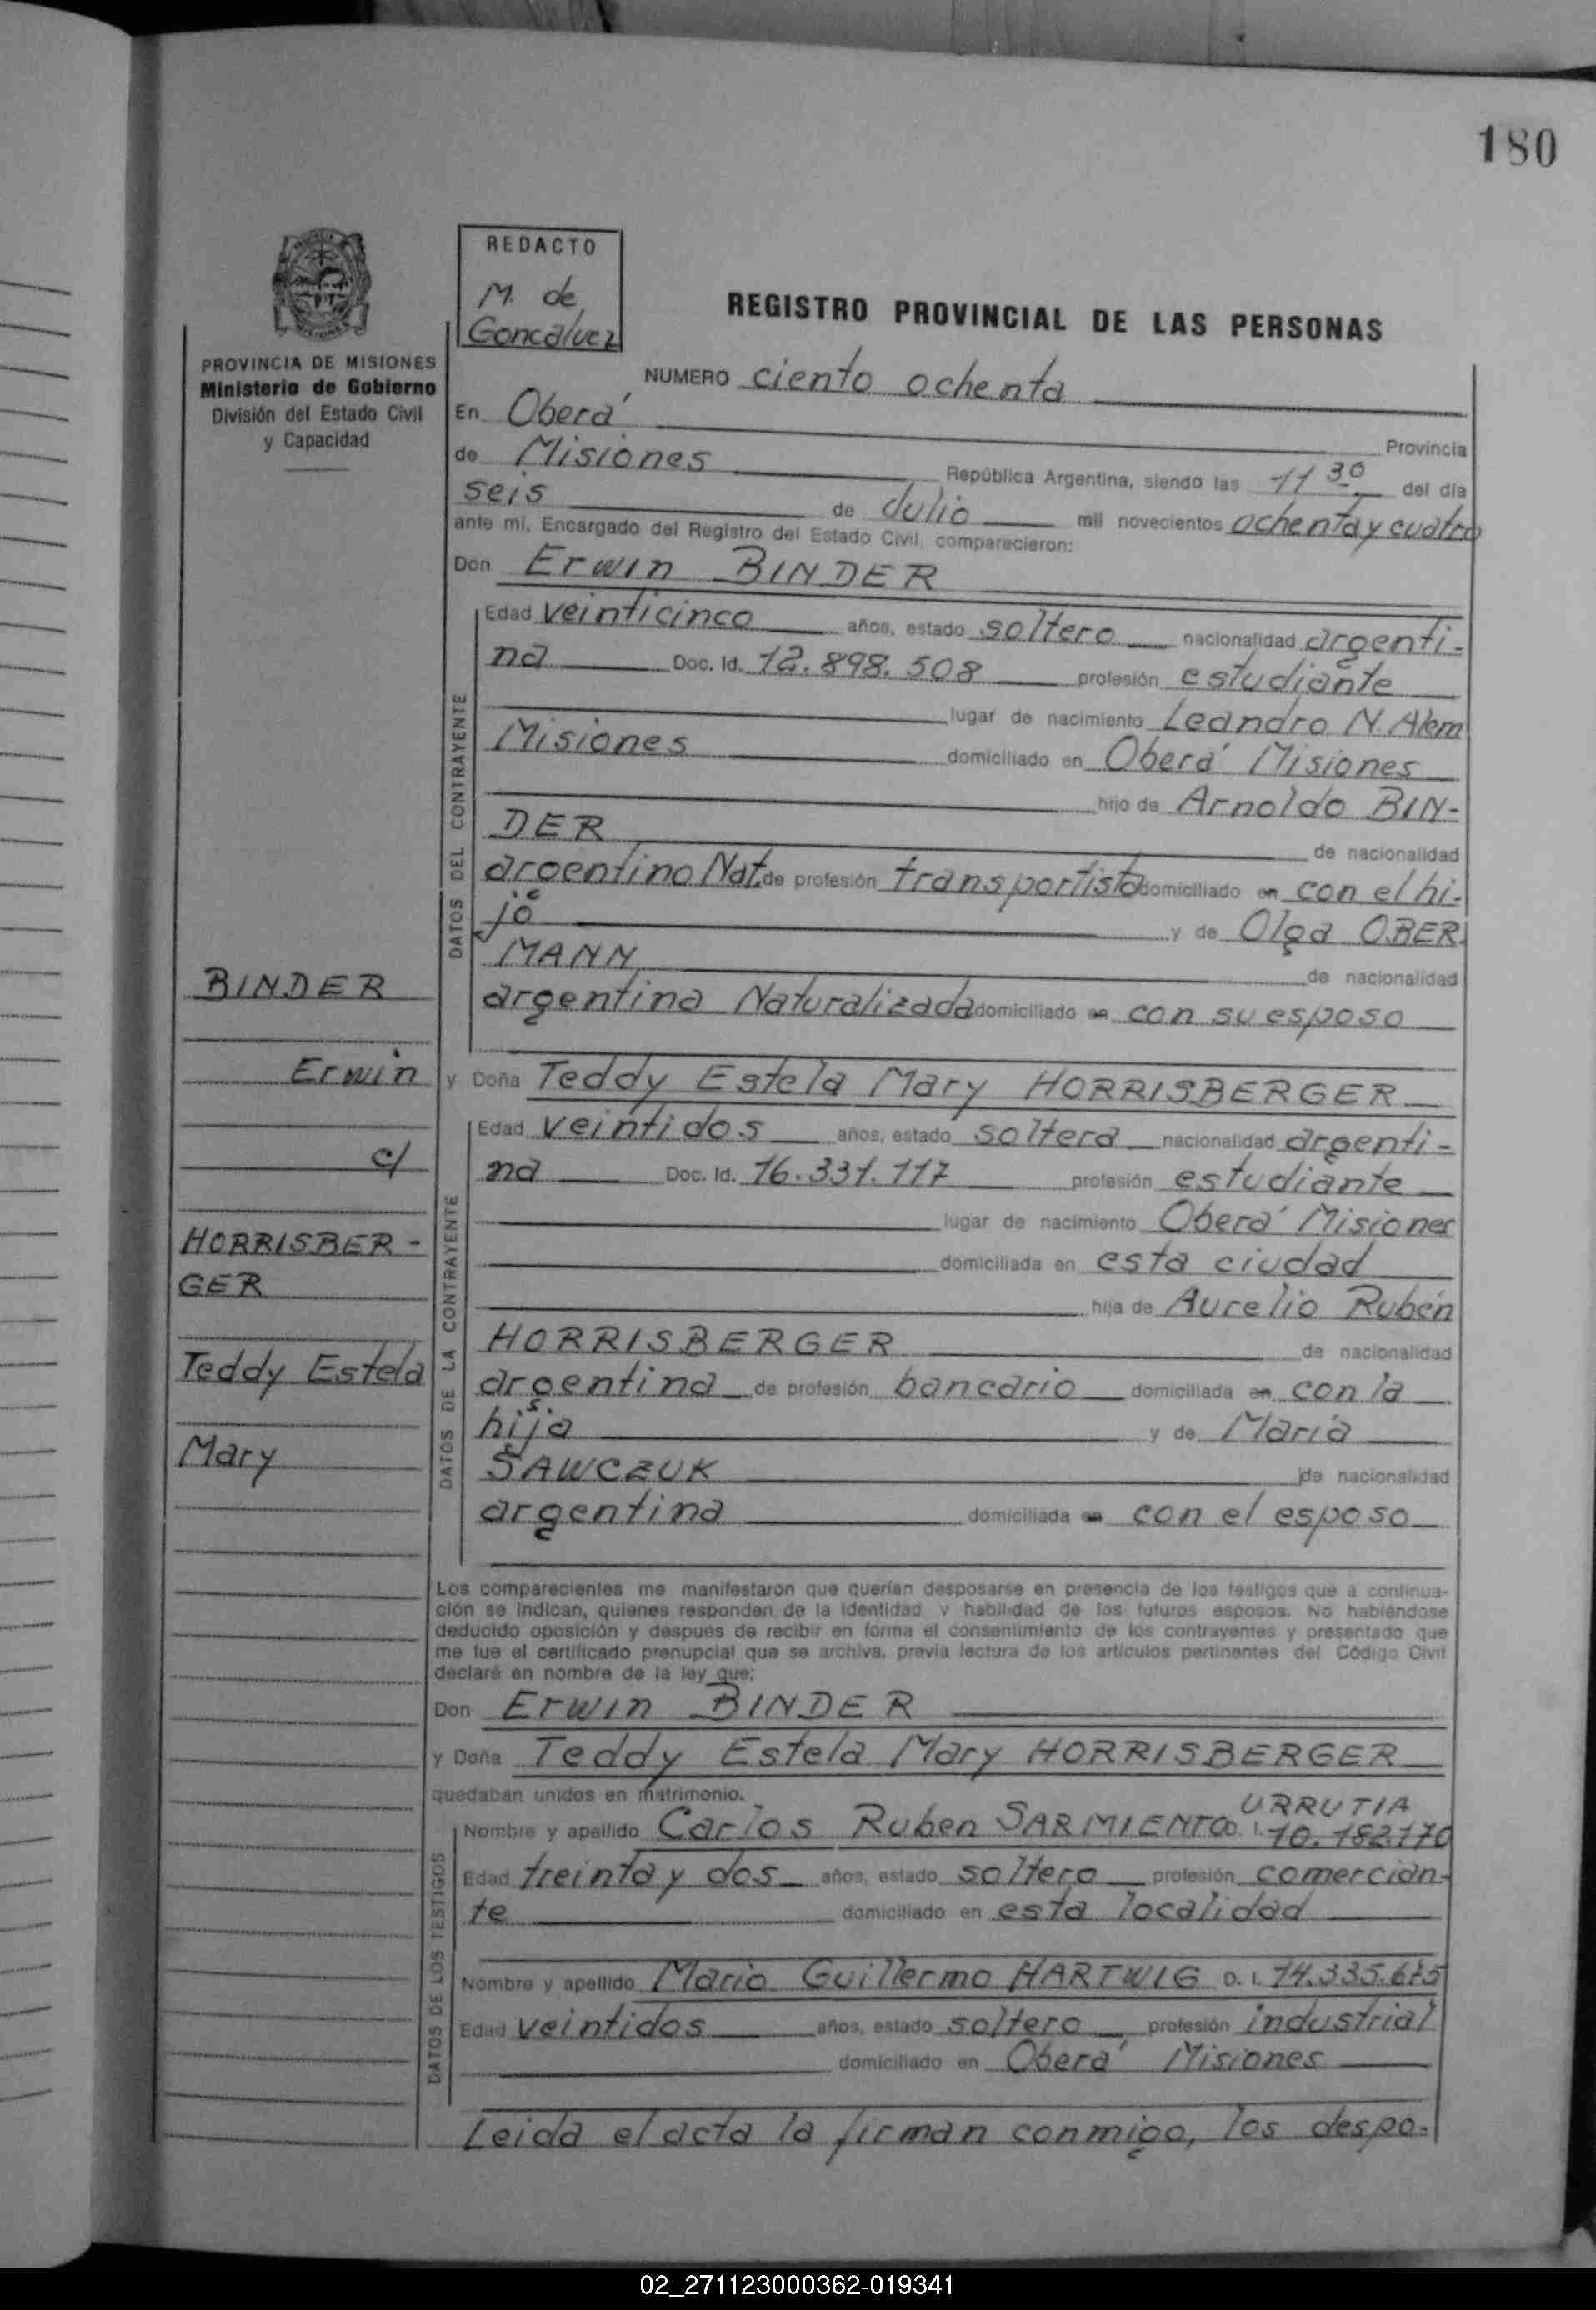 180
REDACTO
M. de
Goncalvez
REGISTRO PROVINCIAL DE LAS PERSONAS
PROVINCIA DE MISIONES
Ministerio de Gobierno
División del Estado Civil
y Capacidad
NUMERO ciento ochenta
En Oberá Provincia
de Misiones República Argentina, siendo las 11 30 del día
seis de Julio mil novecientos ochenta y cuatro
ante mí, Encargado del Registro del Estado Civil, comparecieron:
Don Erwin BINDER
DATOS DEL CONTRAYENTE
Edad veinticinco años, estado soltero nacionalidad argenti-
na Doc. Id. 12.898.508 profesión estudiante
lugar de nacimiento Leandro N. Alem
Misiones domiciliado en Oberá Misiones
hijo de Arnoldo BIN-
DER de nacionalidad
argentino Nat. de profesión transportista domiciliado en con el hi-
jo y de Olga OBER-
MANN de nacionalidad
argentina Naturalizada domiciliado en con su esposo
BINDER
Erwin
c/
HORRISBER-
GER
Teddy Estela
Mary
y Doña Teddy Estela Mary HORRISBERGER
DATOS DE LA CONTRAYENTE
Edad veintidos años, estado soltera nacionalidad argenti-
na Doc. Id. 16.331.117 profesión estudiante
lugar de nacimiento Oberá Misiones
domiciliada en esta ciudad
hija de Aurelio Rubén
HORRISBERGER de nacionalidad
argentina de profesión bancario domiciliada en con la
hija y de María
SAWCZUK de nacionalidad
argentina domiciliada en con el esposo
Los comparecientes me manifestaron que querían desposarse en presencia de los testigos que a continua-
ción se indican, quienes responden de la identidad y habilidad de los futuros esposos. No habiéndose
deducido oposición y después de recibir en forma el consentimiento de los contrayentes y presentado que
me fue el certificado prenupcial que se archiva, previa lectura de los artículos pertinentes del Código Civil
declaré en nombre de la ley que:
Don Erwin BINDER
y Doña Teddy Estela Mary HORRISBERGER
quedaban unidos en matrimonio.
DATOS DE LOS TESTIGOS
URRUTIA
Nombre y apellido Carlos Ruben SARMIENTO D. I. 10.182.170
Edad treinta y dos años, estado soltero profesión comercian-
te domiciliado en esta localidad
Nombre y apellido Mario Guillermo HARTWIG D. I. 14.335.675
Edad veintidos años, estado soltero profesión industrial
domiciliado en Oberá Misiones
Leida el acta la firman conmigo, los despo-
02_271123000362-019341